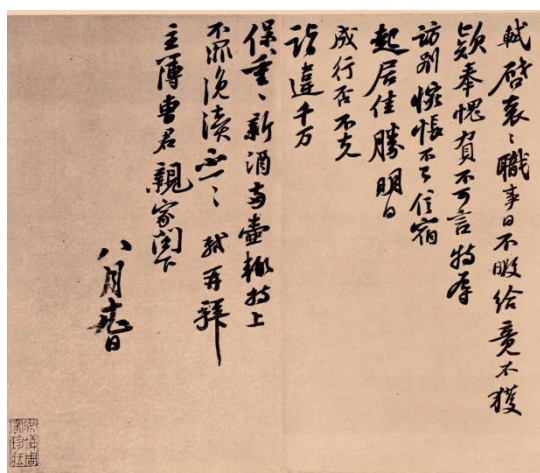 軾啓衮〻職事日不暇給竟不獲
款奉愧負不可言特辱
訪別惋悵不已信宿
起居佳勝明日
成行否不克
詣違千万
保重〻新酒兩壺輒持上
不罪浼瀆不一〻軾再拜
主簿曹君親家閣下
八月十九日